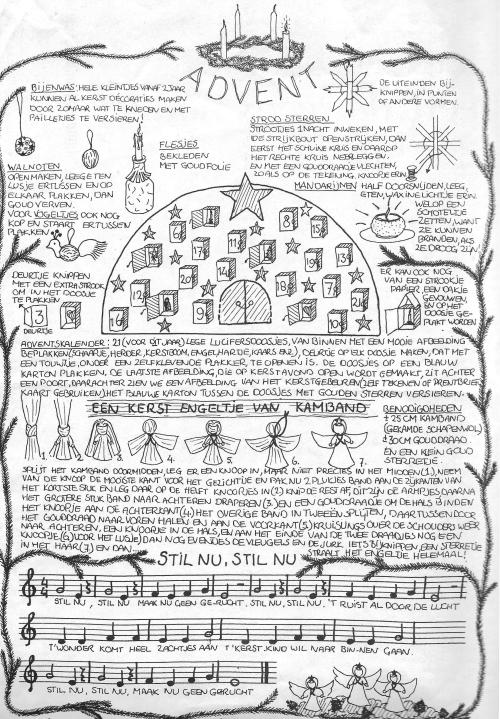 ADVENT
BIJENWAS: HELE KLEINTJES VANAF 2 JAAR
KUNNEN AL KERST DECORATIES MAKEN
DOOR ZOMAAR WAT TE KNEDEN EN MET
PAILLETJES TE VERSIEREN!
DE UITEINDEN BIJ-
KNIPPEN, IN PUNTEN
OF ANDERE VORMEN.
FLESJES
BEKLEDEN
MET GOUDFOLIE
STROO STERREN
STROOTJES 1 NACHT INWEKEN, MET
DE STRIJKBOUT OPENSTRIJKEN, DAN
EERST HET SCHUINE KRUIS EN DAAROP
HET RECHTE KRUIS NEERLEGGEN.
EN MET EEN GOUDDRAADJE VLECHTEN,
ZOALS OP DE TEKENING. KNOOPJE ERIN
WALNOTEN
OPENMAKEN, LEEGETEN
LUSJE ERTUSSEN EN OP
ELKAAR PLAKKEN, DAN
GOUD VERVEN.
VOOR VOGELTJES OOK NOG
KOP EN STAART ERTUSSEN
PLAKKEN
MANDARIJNEN HALF DOORSNIJDEN, LEEG
ETEN, WAXINELICHTJE ERIN.
WEL OP EEN
SCHOTELTJE
ZETTEN, WANT
ZE KUNNEN
BRANDEN, ALS
ZE DROOG ZIJN!
DEURTJE KNIPPEN
MET EEN EXTRA STROOK
OM IN HET DOOSJE
TE PLAKKEN
3
3
DEURTJE
ER KAN OOK NOG
VAN EEN STROOKJE
PAPIER EEN DAKJE
GEVOUWEN,
EN OP HET
DOOSJE GE-
PLAKT WORDEN
ADVENTSKALENDER: 21 (VOOR 4 JAAR) LEGE LUCIFERSDOOSJES, VAN BINNEN MET EEN MOOIE AFBEELDING
BEPLAKKEN (SCHAAPJE, HERDER, KERSTBOOM, ENGEL, HARDE, KAARS ENZ), DEURTJE OP ELK DOOSJE MAKEN, DAT MET
EEN TOUWTJE, ONDER EEN ZELFKLEVENDE PLAKKER, TE OPENEN IS. DE DOOSJES OP EEN BLAUW
KARTON PLAKKEN. DE LAATSTE AFBEELDING, DIE OP KERSTAVOND OPEN WORDT GEMAAKT, ZIT ACHTER
EEN POORT, DAARACHTER ZIEN WE EEN AFBEELDING VAN HET KERSTGEBEUREN (ZELF TEKENEN OF PRENTBRIEF-
KAART GEBRUIKEN) HET BLAUWE KARTON TUSSEN DE DOOSJES MET GOUDEN STERREN VERSIEREN.
EEN KERST ENGELTJE VAN KAMBAND
BENODIGDHEDEN
± 25 CM KAMBAND
(GEKAMDE SCHAPENWOL)
± 30 CM GOUDDRAAD
EN EEN KLEIN GOUD
STERRETJE.
1. 2. 3. 4. 5. 6. 7.
SPLIJT HET KAMBAND DOORMIDDEN, LEG ER EEN KNOOP IN, MAAR NIET PRECIES IN HET MIDDEN (1). NEEM
VAN DE KNOOP DE MOOISTE KANT VOOR HET GEZICHTJE EN PAK NU 2 PLUKJES BAND AAN DE ZIJKANTEN VAN
HET KORTSTE STUK EN LEG DAAR OP DE HELFT KNOOPJES IN (2) KNIP DE REST AF, DIT ZIJN DE ARMPJES DAARNA
HET GROTERE STUK BAND NAAR ACHTEREN DRAPEREN (3) EN EEN GOUDDRAADJE OM DE HALS BINDEN
HET KNOOPJE AAN DE ACHTERKANT (4) HET OVERIGE BAND IN TWEEËN SPLIJTEN, DAARTUSSENDOOR
HET GOUDDRAAD NAAR VOREN HALEN EN AAN DE VOORKANT (5) KRUISLINGS OVER DE SCHOUDERS WEER
NAAR ACHTEREN. EEN KNOOPJE IN DE HALS, EN AAN HET EINDE VAN DE TWEE DRAADJES NOG EEN
KNOOPJE (6) VOOR HET LUSJE) DAN NOG EVENTJES DE VLEUGELS EN DE JURK IETS BIJKNIPPEN, EEN STERRETJE
IN HET HAAR (7) EN DAN.... STRAALT HET ENGELTJE HELEMAAL!
STIL NU, STIL NU
STIL NU, STIL NU MAAK NU GEEN GE-RUCHT. STIL NU, STIL NU, 'T RUIST AL DOOR DE LUCHT
T'WONDER KOMT HEEL ZACHTJES AAN T'KERST KIND WIL NAAR BIN-NEN GAAN.
STIL NU, STIL NU, MAAK NU GEEN GERUCHT